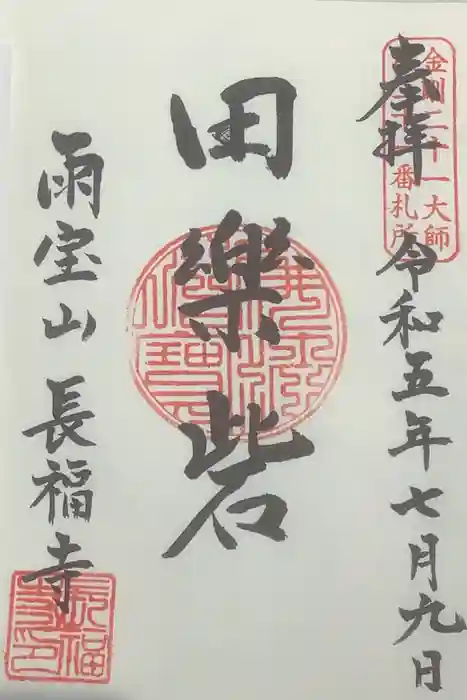 奉拝 令和五年七月九日
金剛二十一大師
番札所
田樂砦
雨宝山 長福寺
長福寺印